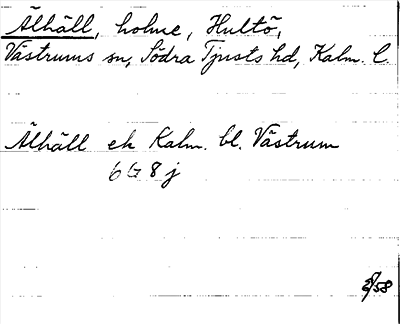 Ålhäll, holme, Hultö,
Västrums sn, Södra Tjusts hd, Kalm. l.
Ålhäll ek Kalm. bl. Västrum
6 G 8 j